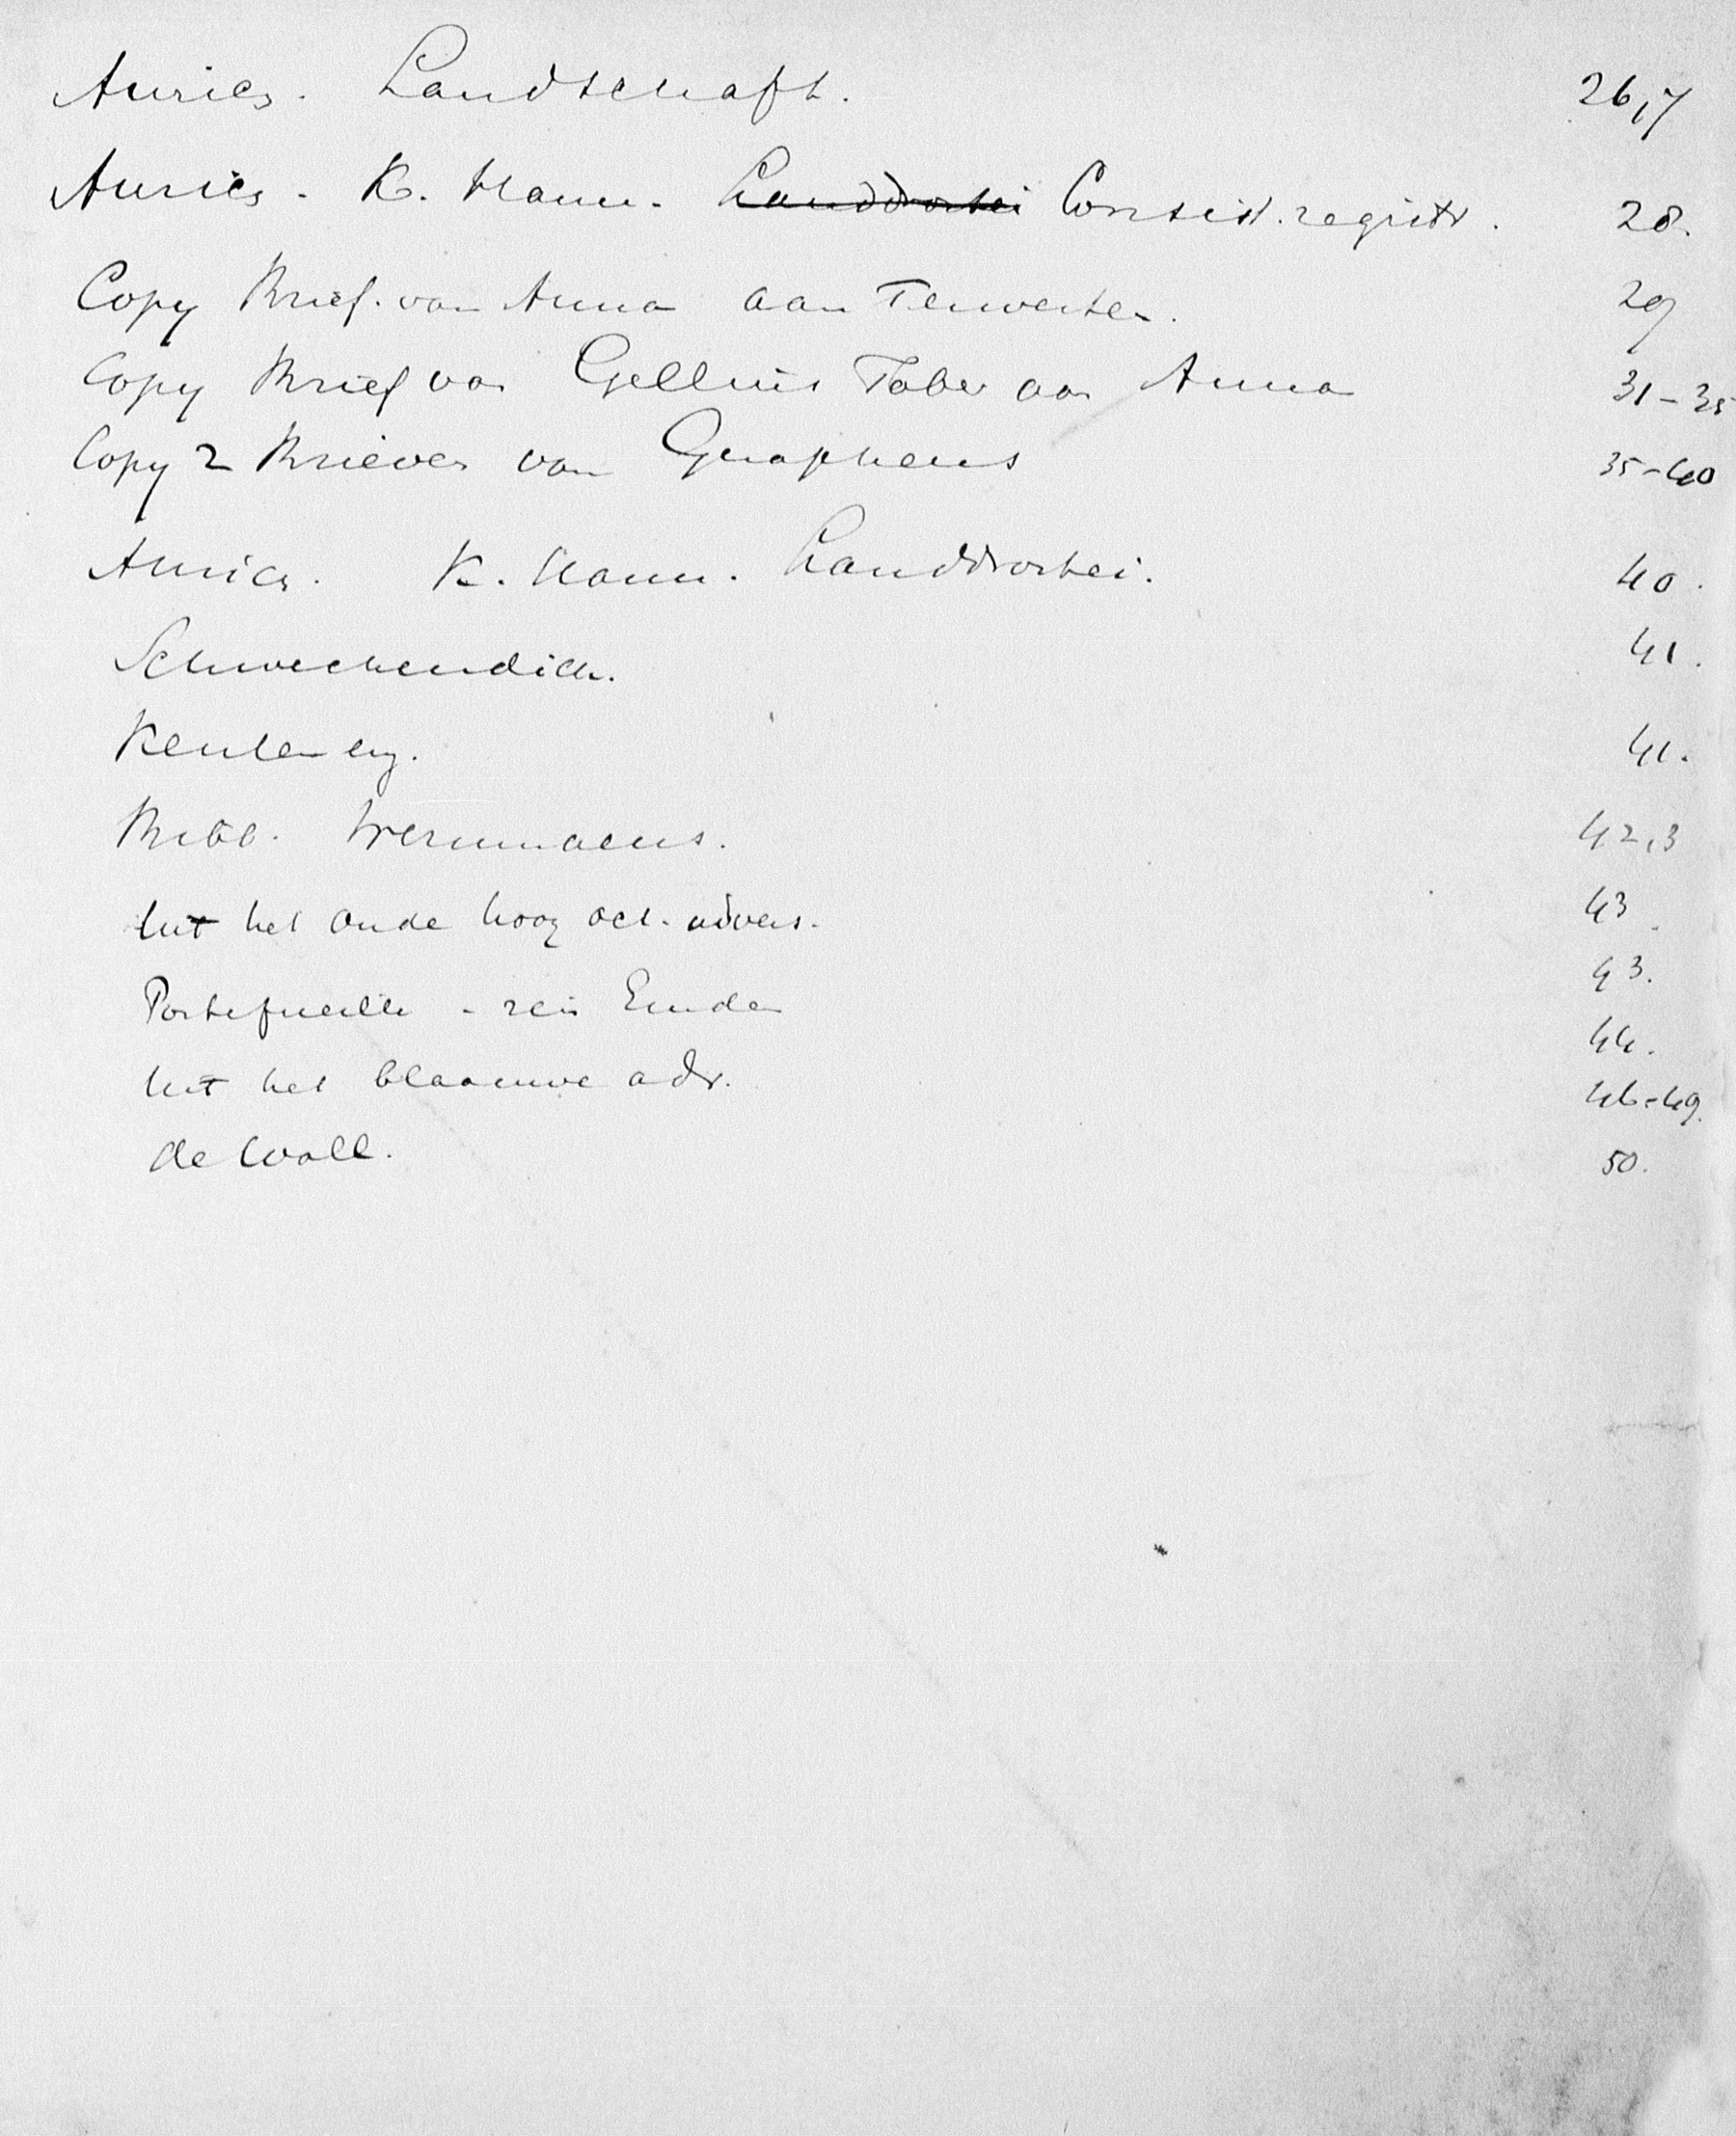 Aurich. Landschaft. 26,7
Aurich. K. Hann. Landdrostei Consist. registr. 28.
Copy Brief. van Anna aan Terwesten. 29
Copy Brief van Gellius Faber aan Anna 31-35
Copy 2 Brieven van Gnapheus 35-40
Aurich. K. Hann. Landdrostei. 40.
Schweckendick. 41.
41.
Bibl. 42,3
Uit het oude hoog oct. advers. 43.
Portefueille - reis Emden 43.
44.
Uit het blaauwe adv. 46-49.
de Wall. 50.